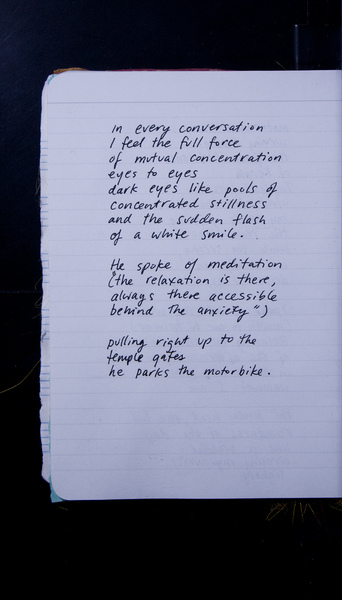 in every conversation
I feel the full force
of mutual concentration
eyes to eyes
dark eyes like pools of
concentrated stillness
and the sudden flash
of a white smile.
He spoke of meditation
("the relaxation is there,
always there accessible
behind the anxiety")
pulling right up to the
temple gates
he parks the motorbike.